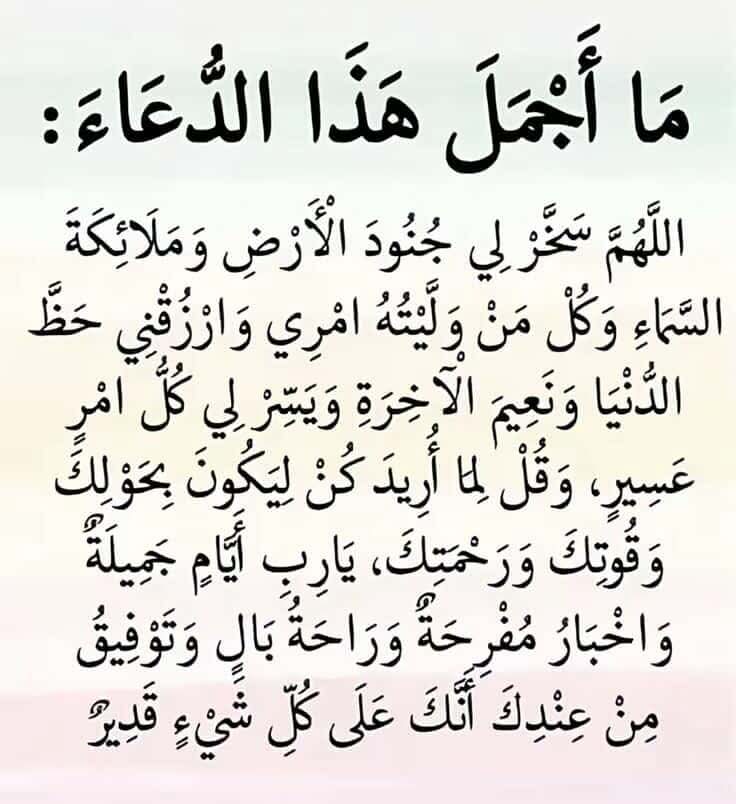 مَا أَجْمَلَ هَذَا الدُّعَاءَ :
اللَّهُمَّ سَخَّرْ لِي جُنُودَ الْأَرْضِ وَمَلَائِكَةَ
السَّمَاءِ وَكُلْ مَنْ وَلَّيْتُهُ امْرِي وَارْزُقْنِي حَظَّ
الدُّنْيَا وَنَعِيمَ الْآخِرَةِ وَيَسِّرْ لِي كُلُّ امْرٍ
عَسِيرٍ، وَقُلْ لِمَا أُرِيدَ كُنْ لِيَكُونَ بِحَوْلِكَ
وَقُوتِكَ وَرَحْمَتِكَ، يَارِبِ أَيَّامٍ جَمِيلَةٌ
وَاخْبَارُ مُفْرِحَةٌ وَرَاحَةُ بَالٍ وَتَوْفِيقُ
مِنْ عِنْدِكَ أَنَّكَ عَلَى كُلِّ شَيْءٍ قَدِيرٌ